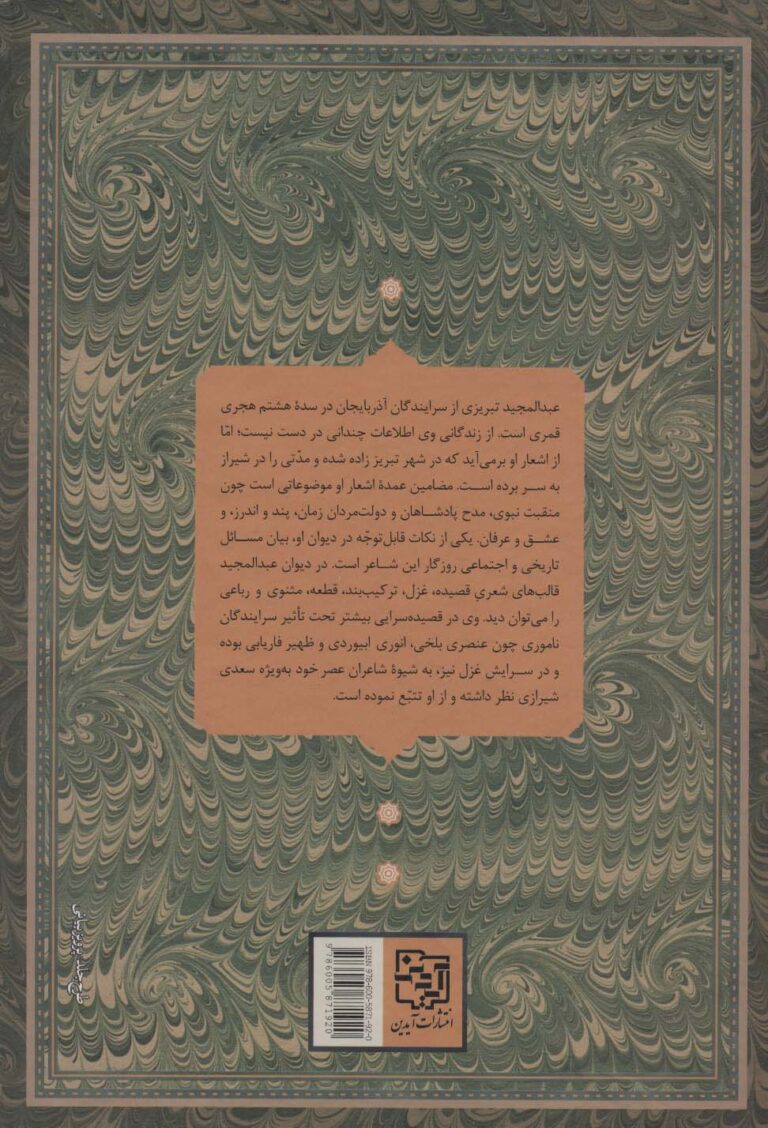 عبدالمجید تبریزی از سرایندگان آذربایجان در سدهٔ هشتم هجری
قمری است. از زندگانی وی اطلاعات چندانی در دست نیست؛ امّا
از اشعار او برمی‌آید که در شهر تبریز زاده شده و مدّتی را در شیراز
به سر برده است. مضامین عمدهٔ اشعار او موضوعاتی است چون
منقبت نبوی، مدح پادشاهان و دولت‌مردان زمان، پند و اندرز، و
عشق و عرفان. یکی از نکات قابل‌توجّه در دیوان او، بیان مسائل
تاریخی و اجتماعی روزگار این شاعر است. در دیوان عبدالمجید
قالب‌های شعریِ قصیده، غزل، ترکیب‌بند، قطعه، مثنوی و رباعی
را می‌توان دید. وی در قصیده‌سرایی بیشتر تحت تأثیر سرایندگان
ناموری چون عنصری بلخی، انوری ابیوردی و ظهیر فاریابی بوده
و در سرایش غزل نیز، به شیوهٔ شاعران عصر خود به‌ویژه سعدی
شیرازی نظر داشته و از او تتبّع نموده است.
طرح جلد: پرویز بیانی
ISBN 978-600-5871-92-0
9 786005 871920
آیدین
انتشارات آیدین